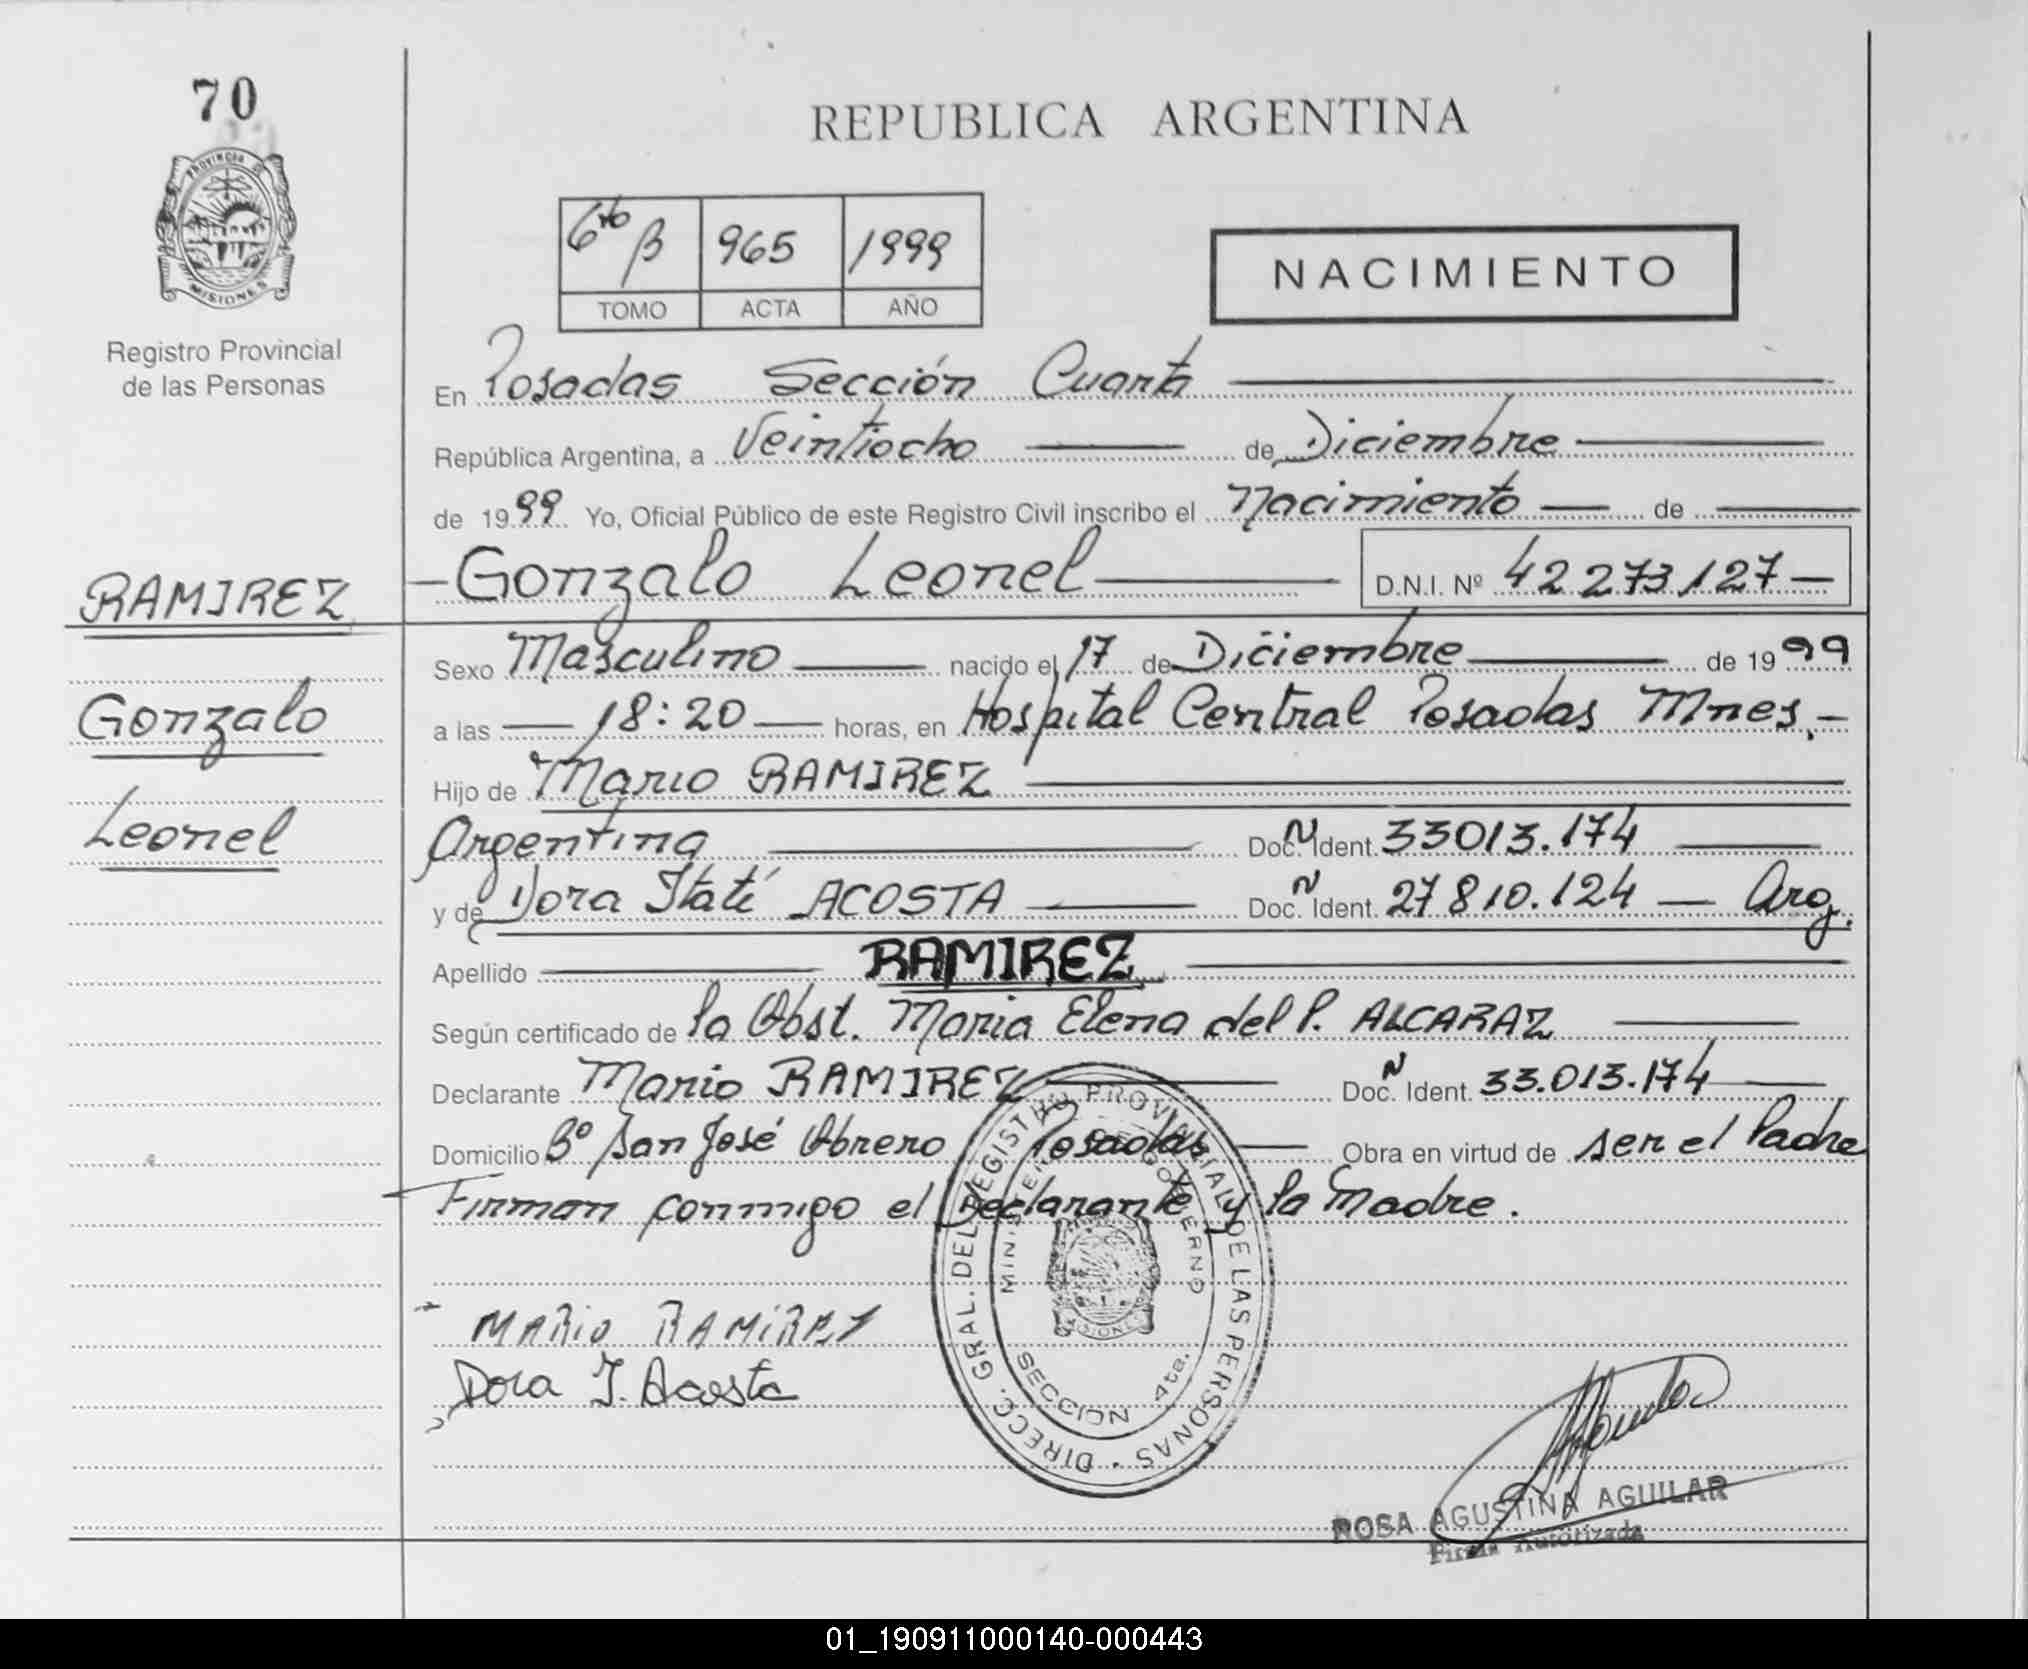 70
PROVINCIA DE
MISIONES
Registro Provincial
de las Personas
RAMIREZ
Gonzalo
Leonel
REPUBLICA ARGENTINA
6to B 965 1999
TOMO ACTA AÑO
NACIMIENTO
En Posadas Sección Cuarta
República Argentina, a Veintiocho de Diciembre
de 1999 Yo, Oficial Público de este Registro Civil inscribo el Nacimiento de
Gonzalo Leonel D.N.I. Nº 42273127
Sexo Masculino nacido el 17 de Diciembre de 1999
a las 18:20 horas, en Hospital Central Posadas Mnes.
Hijo de Mario RAMIREZ
Argentina Doc. N Ident. 33013.174
y de Dora Itatí ACOSTA Doc. N Ident. 27810.124 Arg.
Apellido RAMIREZ
Según certificado de la Obst. Maria Elena del P. ALCARAZ
Declarante Mario RAMIREZ Doc. N Ident. 33.013.174
Domicilio Bº San José Obrero Posadas Obra en virtud de ser el Padre
Firman conmigo el Declarante y la Madre.
MARIO RAMIREZ
Dora I. Acosta
DIRECC. GRAL. DEL REGISTRO PROVINCIAL DE LAS PERSONAS
MINISTERIO DE GOBIERNO
MISIONES
SECCION 4ta.
ROSA AGUSTINA AGUILAR
Firma Autorizada
01_190911000140-000443